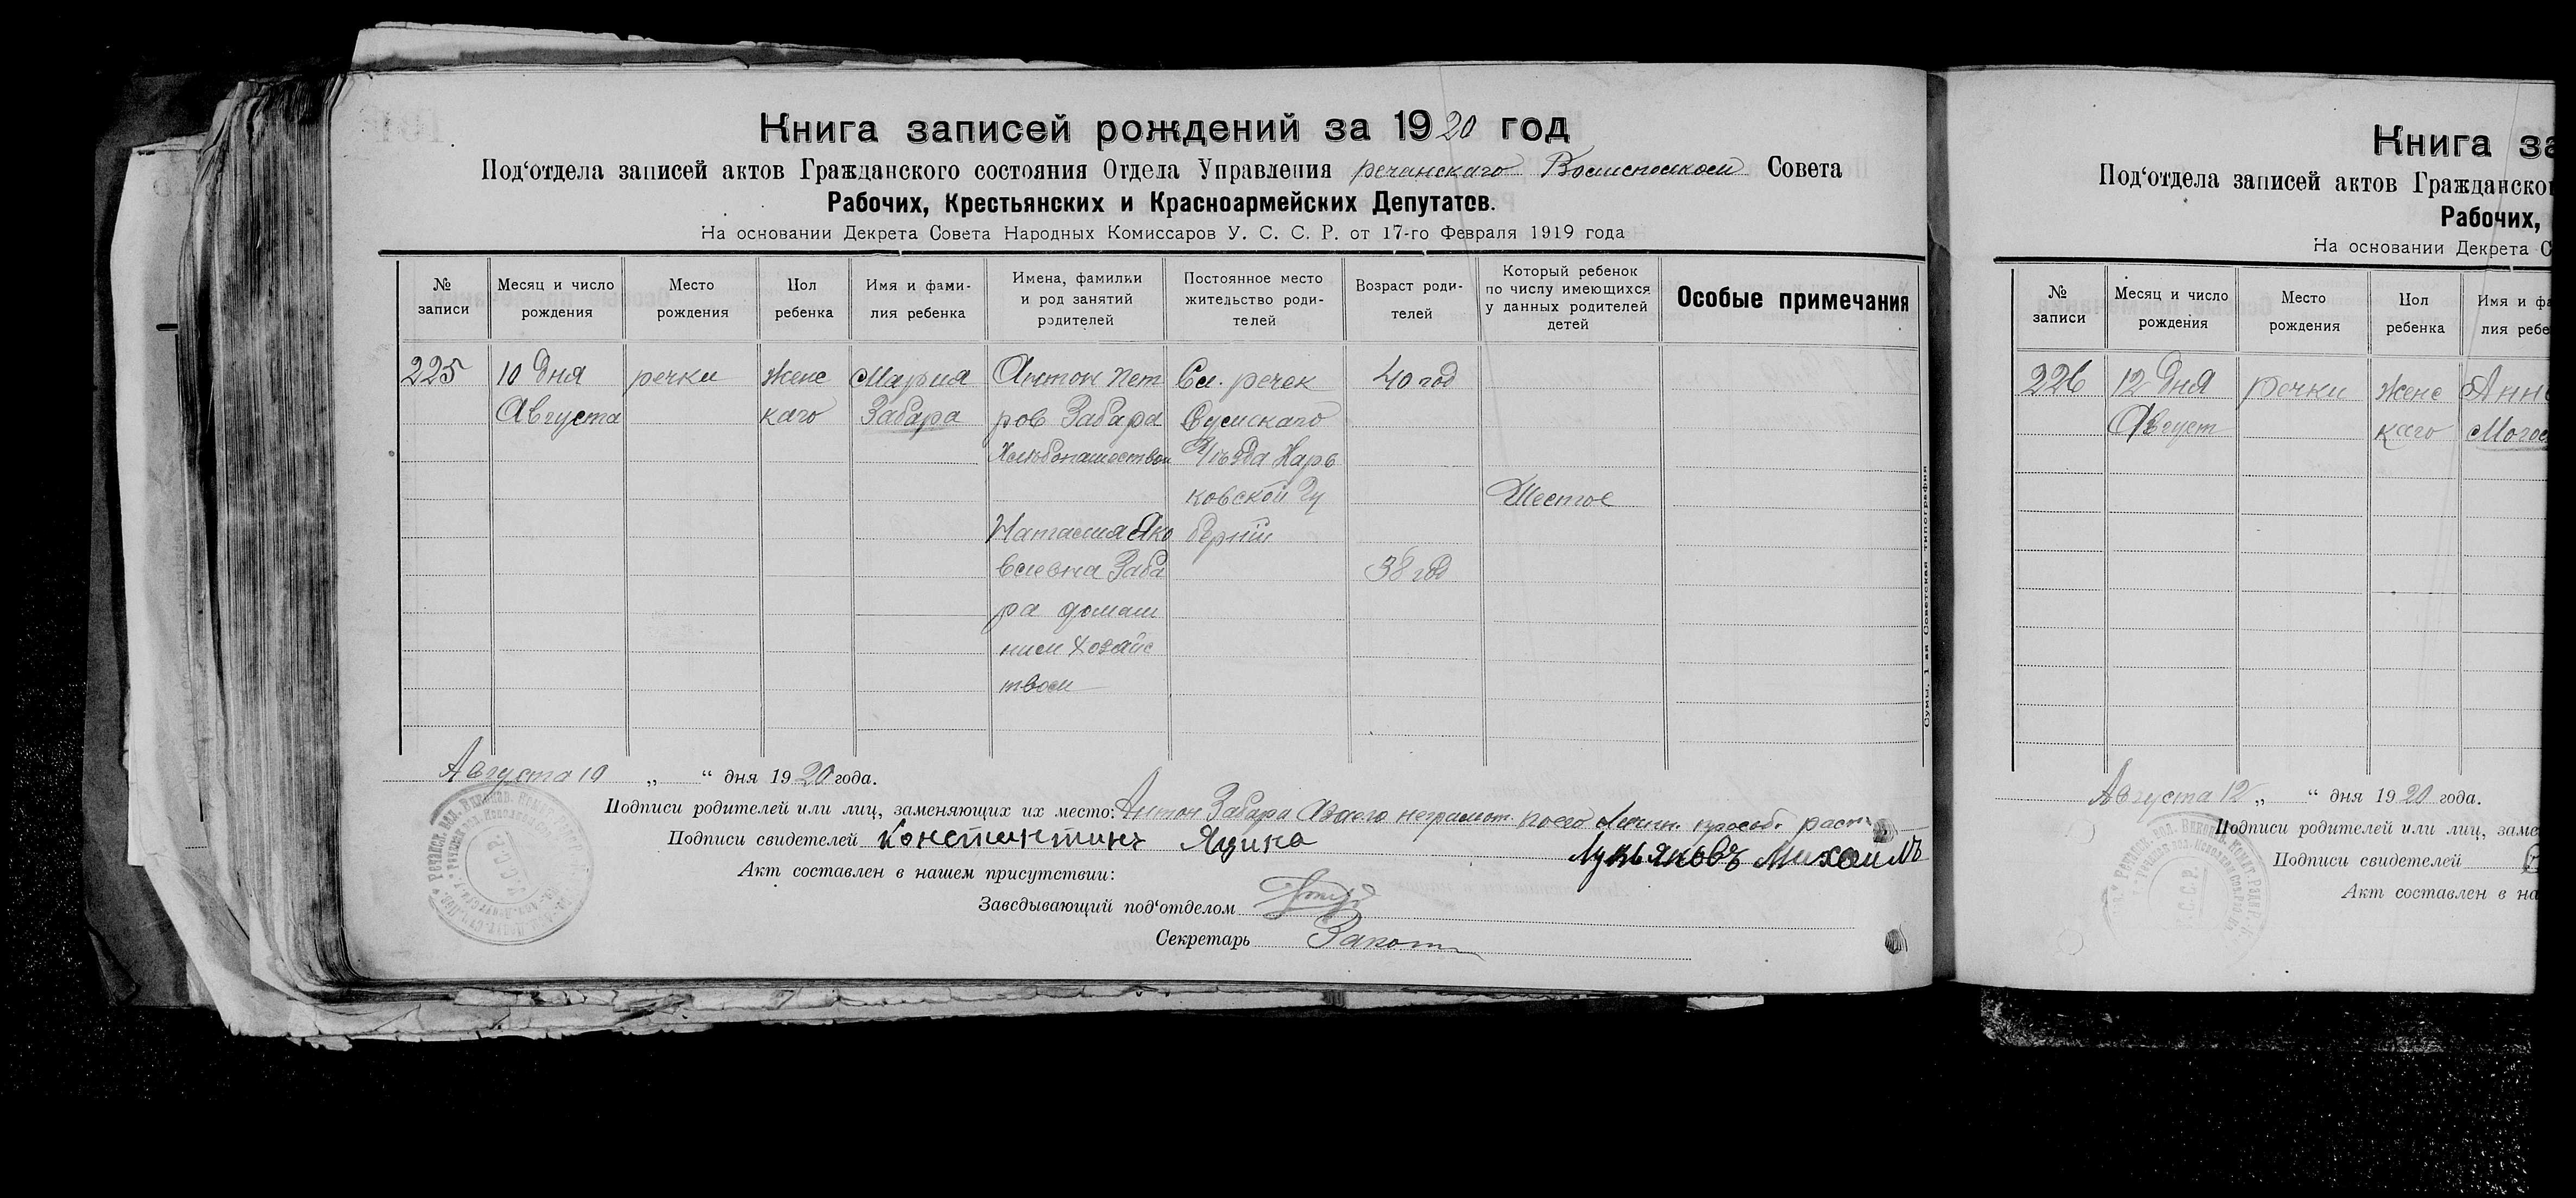 Книга записей рождений за 1920 год
Под‘отдела записей актов Гражданского состояния Отдела Управления речанскаго Совета
Рабочих, Крестьянских и Красноармейских Депутатов.
На основании Декрета Совета Народных Комиссаров У. С. С. Р. от 17-го Февраля 1919 года
№ записи
Месяц и число рождения
Место рождения
Пол ребенка
Имя и фами-
лия ребенка
Имена, фамилии
и род занятий
родителей
Постоянное место
жительство роди-
телей
Возраст роди-
телей
Который ребенок
по числу имеющихся
у данных родителей
детей
Особые примечания
225
10 дня
Августа
речки
женс
каго
Мария
Забара
Антон Пет
ров Забара
Наталия Яко
влевна Заба
ра домаш
ним хозяйс
твом
Сл. речек
Сумскаго
Уъзда Харь
ковской Гу
бернiи
40 год
38 год
Шестое
Сумы, 1-ая Советская типография
Августа 10 „ “ дня 1920 года.
Подписи родителей или лиц, заменяющих их место: Антон Забара неграмот.
Подписи свидетелей Константинъ Яцина
Лукьяновъ Михаилъ
Акт составлен в нашем присутствии:
Заведывающий под‘отделом
Секретарь
Книга за
Под‘отдела записей актов Гражданско
Рабочих,
На основании Декрета С
№ записи
Месяц и число рождения
Место рождения
Пол ребенка
Имя и фа
лия ребе
226
12 дня
Август
речки
женс
каго
Анн
Августа 12 „ “ дня 1920 года.
Подписи родителей или лиц, заме
Подписи свидетелей
Акт составлен в на